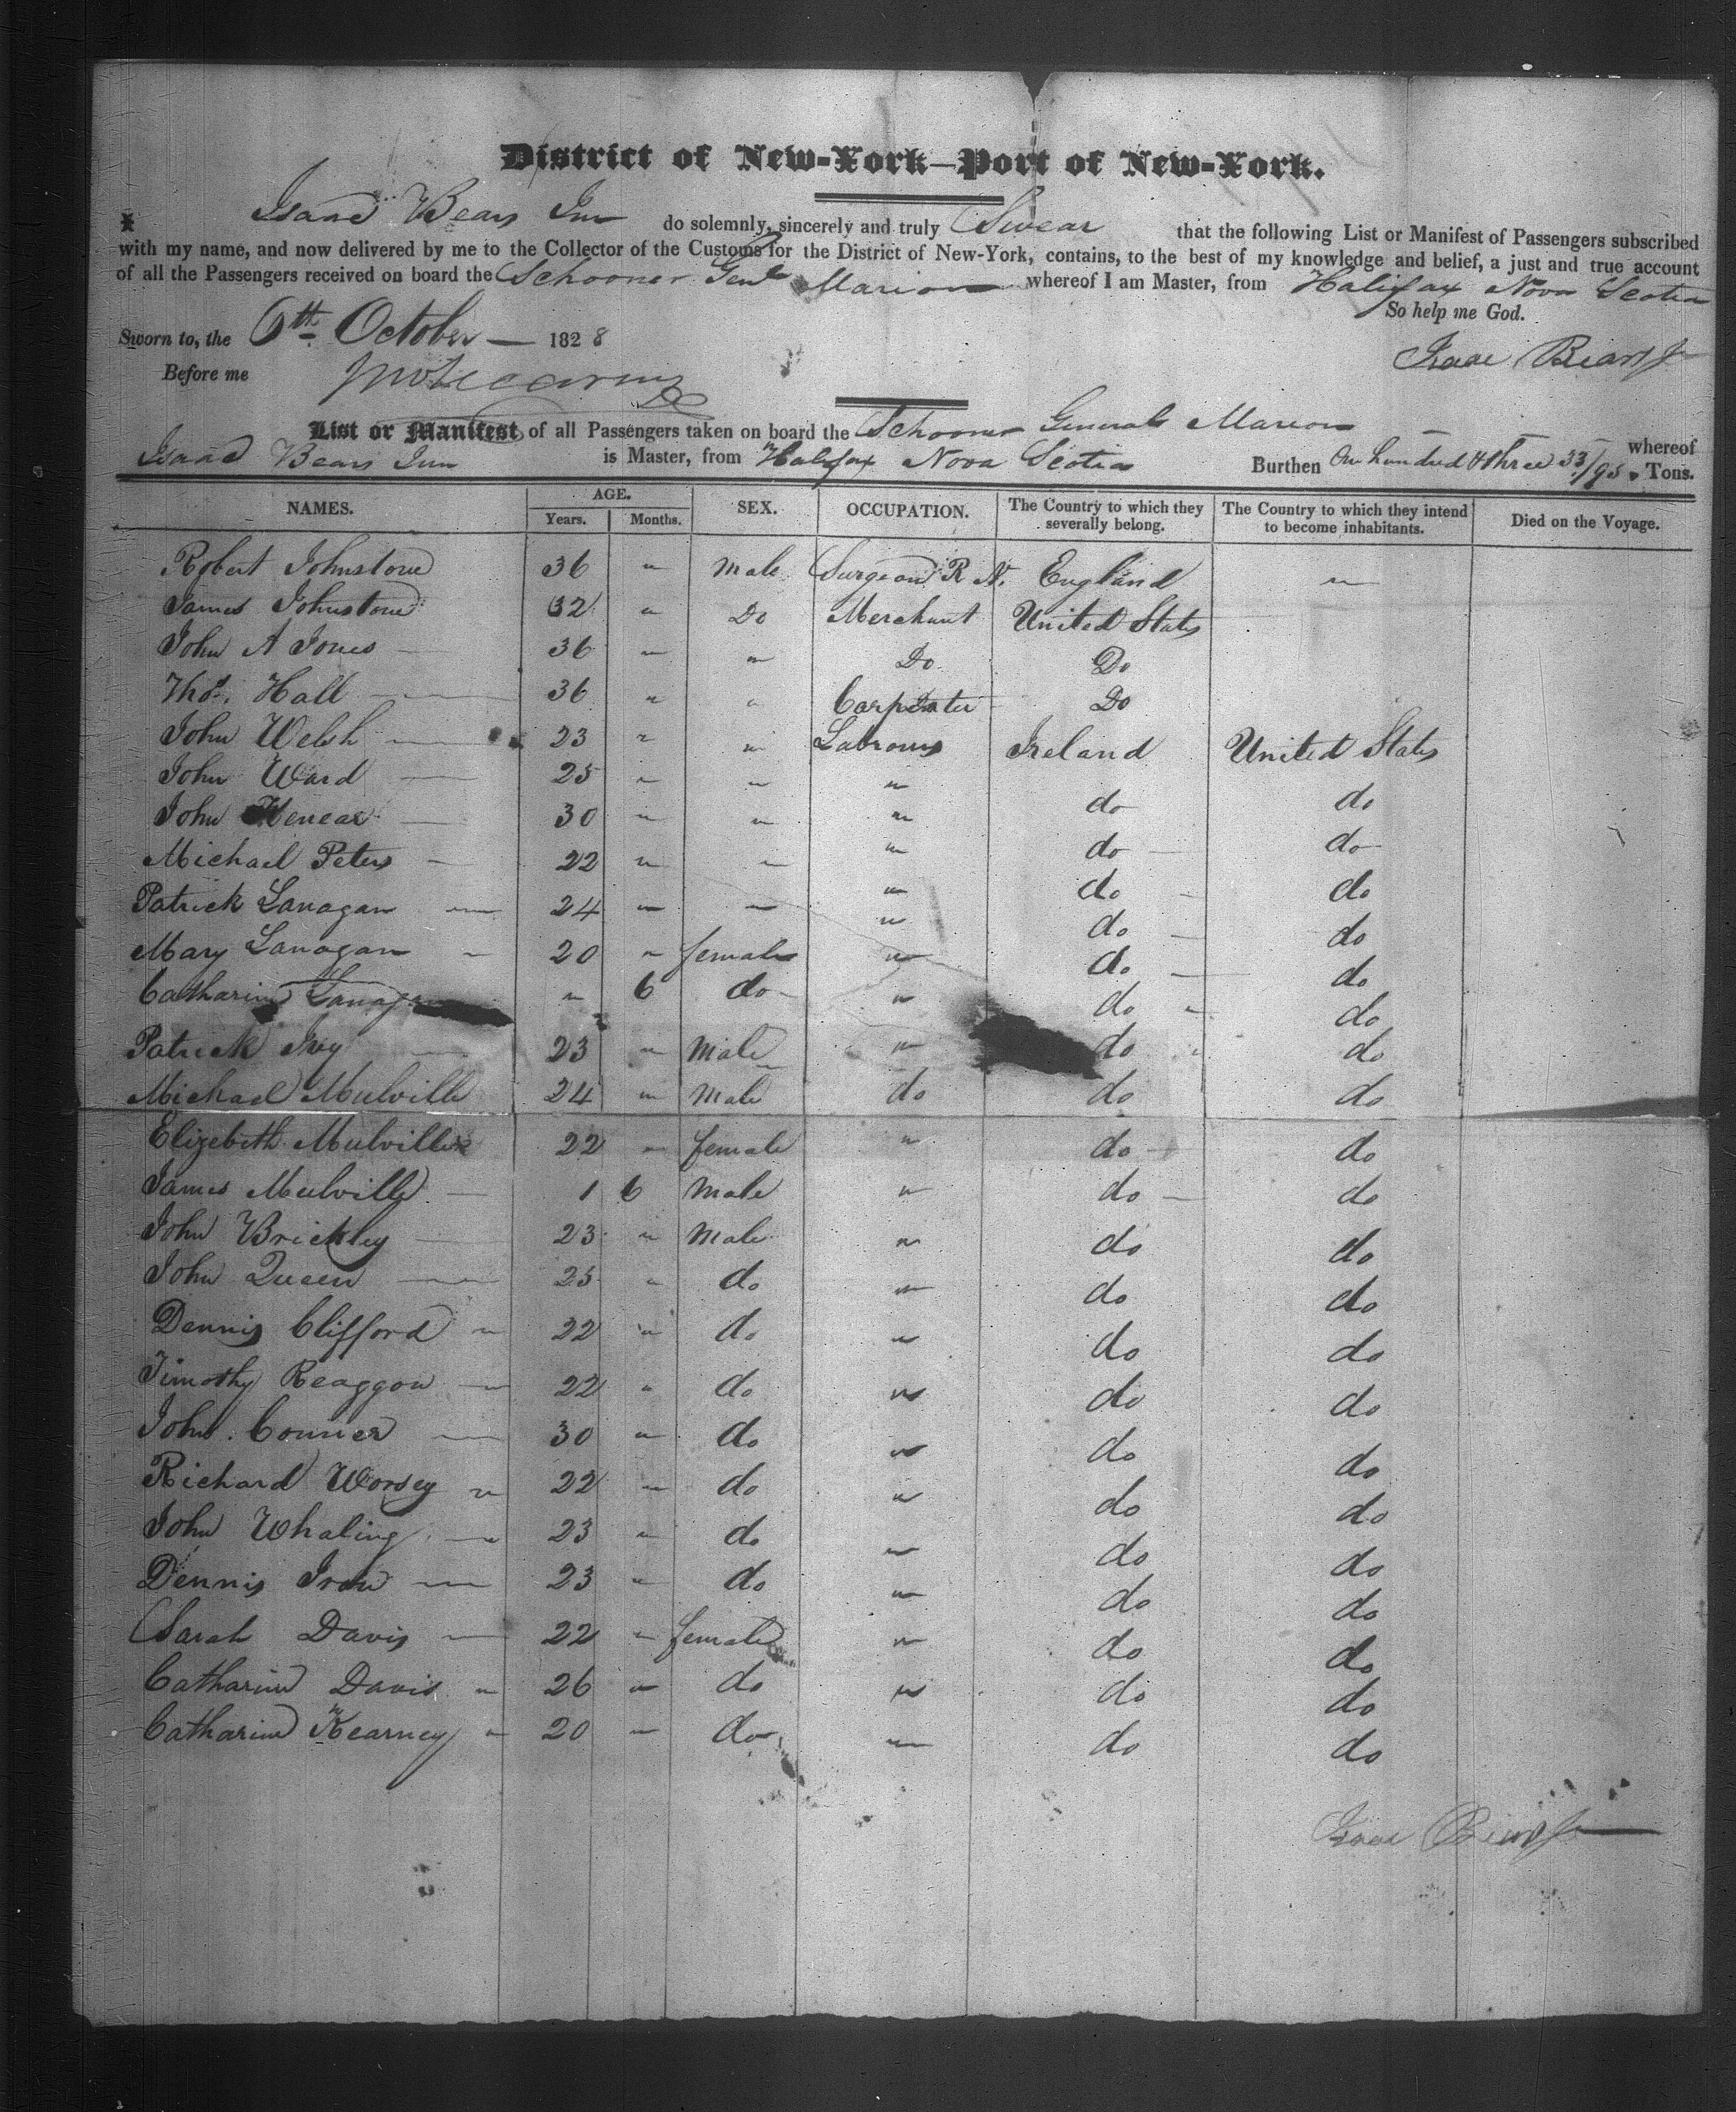 District of New-York—Port of New-York.
I Isaac Bears Jun do solemnly, sincerely and truly Swear that the following List or Manifest of Passengers subscribed
with my name, and now delivered by me to the Collector of the Customs for the District of New-York, contains, to the best of my knowledge and belief, a just and true account
of all the Passengers received on board the Schooner Genl Marion whereof I am Master, from Halifax Nova Scotia
So help me God.
Sworn to, the 6th October 1828
Isaac Bears Jr
Before me
List or Manifest of all Passengers taken on board the Schooner General Marion whereof
Isaac Bears Jun is Master, from Halifax Nova Scotia Burthen One hundred & three 33/95 Tons.
NAMES. AGE. Years. Months. SEX. OCCUPATION. The Country to which they severally belong. The Country to which they intend to become inhabitants. Died on the Voyage.
Robert Johnstone 36 " male Surgeon R N. England "
James Johnstone 32 " Do Merchant United States
John A Jones 36 " " Do Do
Thos. Hall 36 " " Carpenter Do
John Welsh 23 " " Labrours Ireland United States
John Ward 25 " " " do do
John Menear 30 " " " do do
Michael Peters 22 " " " do do
Patrick Lanagan 24 " " " do do
Mary Lanagan 20 " female " do do
Catharine Lanag " 6 do " do do
Patrick Ivy 23 " Male " do do
Michael Mulville 24 " Male do do do
Elizebeth Mulville 22 " female " do do
James Mulville 1 6 Male " do do
John Brickley 23 " Male " do do
John Queen 25 " do " do do
Dennis Clifford 22 " do " do do
Timothy Reaggon 22 " do " do do
John Conner 30 " do " do do
Richard Worsey 22 " do " do do
John Whaling 23 " do " do do
Dennis Iron 23 " do " do do
Sarah Davis 22 " female " do do
Catharine Davis 26 " do " do do
Catharine Kearney 20 " do " do do
Isaac Bears Jr